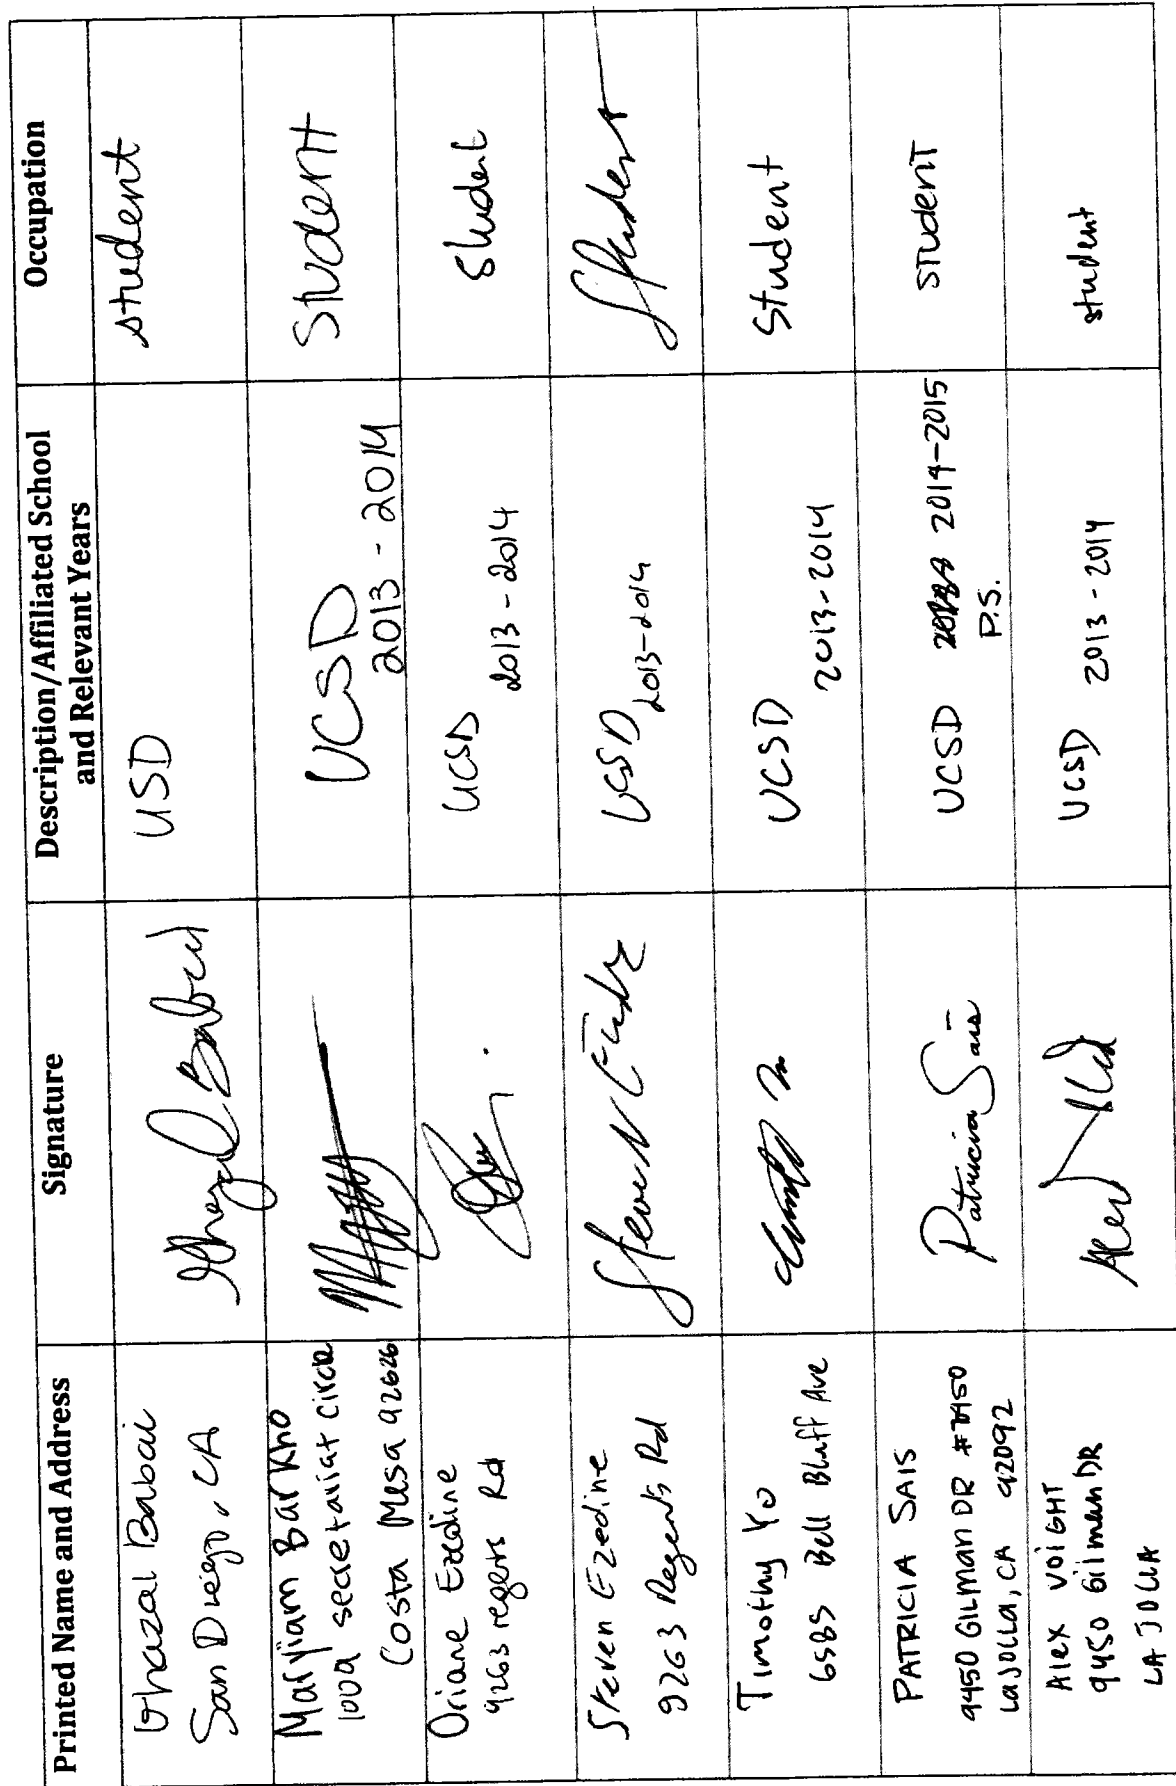 Printed Name and Address
Signature
Description/Affiliated School
and Relevant Years
Occupation
Ghazal Babai
San Diego, CA
Ghazal Babai
USD
student
Maryjam Barkho
1002 secretariat circle
Costa Mesa 92626
UCSD
2013 - 2014
Student
Oriane Ezedine
9263 regents Rd
UCSD
2013 - 2014
Student
Steven Ezedine
9263 Regents Rd
UCSD 2013-2014
Student
Timothy Yo
6585 Bell Bluff Ave
UCSD
2013-2014
Student
PATRICIA SAIS
9450 GILMAN DR
La JOLLA, CA 92092
Patricia Sais
UCSD 2014-2015
P.S.
STUDENT
Alex VOIGHT
9450 Gilman DR
LA JOLLA
UCSD 2013 - 2014
student